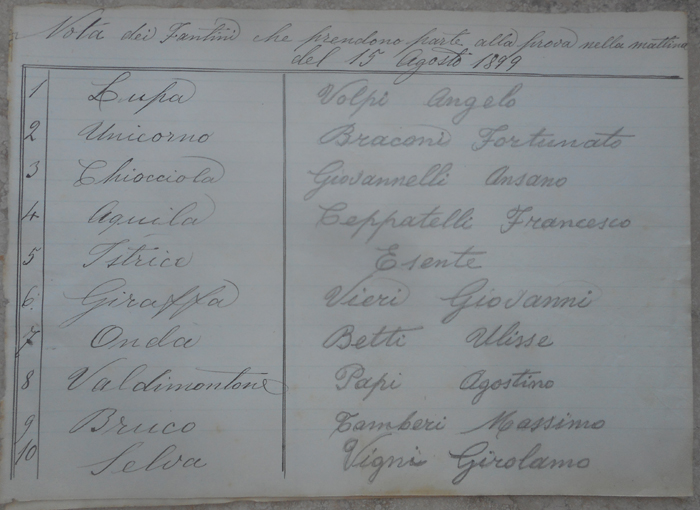 Nota dei Fantini che prendono parte alla prova nella mattina
del 15 Agosto 1899
1 Lupa Volpi Angelo
2 Unicorno Braconi Fortunato
3 Chiocciola Giovannelli Ansano
4 Aquila Ceppatelli Francesco
5 Istrice Esente
6. Giraffa Vieri Giovanni
7 Onda Betti Ulisse
8 Valdimontone Papi Agostino
9 Bruco Tamberi Massimo
10 Selva Vigni Girolamo